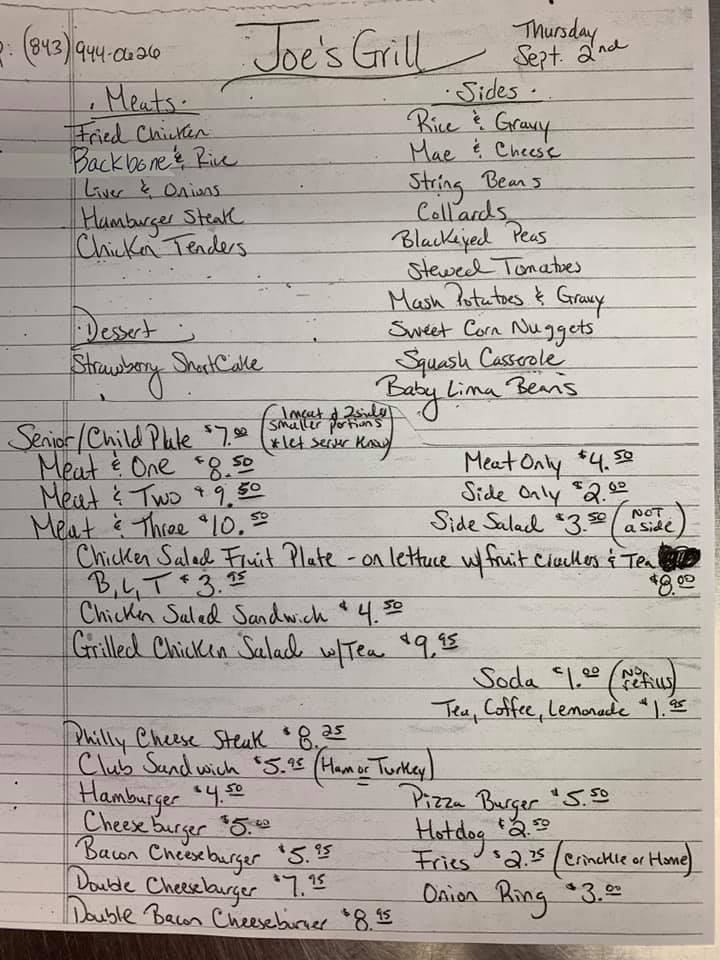 : (843) 944-0626
Joe's Grill
Thursday
Sept. 2nd
· Meats ·
Fried Chicken
Backbone & Rice
Liver & Onions
Hamburger Steak
Chicken Tenders
· Sides ·
Rice & Gravy
Mac & Cheese
String Beans
Collards
Blackeyed Peas
Stewed Tomatoes
Mash Potatoes & Gravy
Sweet Corn Nuggets
Squash Casserole
Baby Lima Beans
· Dessert
Strawberry ShortCake
Senior/Child Plate $7.00 (1 meat & 2 sides
smaller portions
*let server know)
Meat & One $8.50
Meat & Two $9.50
Meat & Three $10.50
Meat Only $4.50
Side Only $2.00
Side Salad $3.50 (NOT a side)
Chicken Salad Fruit Plate - on lettuce w/fruit crackers & Tea
$8.00
B, L, T $3.95
Chicken Salad Sandwich $4.50
Grilled Chicken Salad w/Tea $9.95
Soda $1.00 (No refills)
Tea, Coffee, Lemonade $1.95
Philly Cheese Steak $8.25
Club Sandwich $5.95 (Ham or Turkey)
Hamburger $4.50
Cheeseburger $5.00
Bacon Cheeseburger $5.95
Double Cheeseburger $7.95
Double Bacon Cheeseburger $8.95
Pizza Burger $5.50
Hotdog $2.50
Fries $2.75 (Crinckle or Home)
Onion Ring $3.00